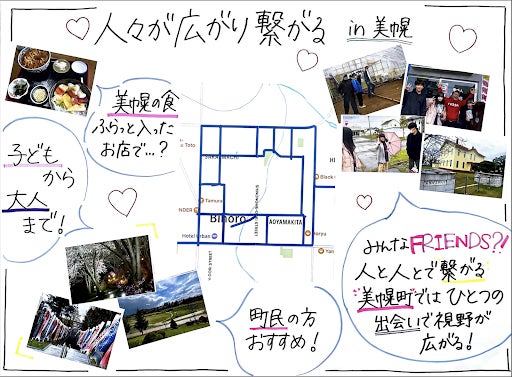 人々が広がり繋がる in 美幌
美幌の食
ふらっと入った
お店で…?
子ども
から
大人
まで!
Toto
SAKAEMACHI
Tamura
NDER
Bihoro
AOYAMAKITA
Hotel Urban
Black
Haryu
Yan
みんなFRIENDS?!
人と人とで繋がる
美幌町ではひとつの
出会いで視野が
広がる!
町民の方
おすすめ!